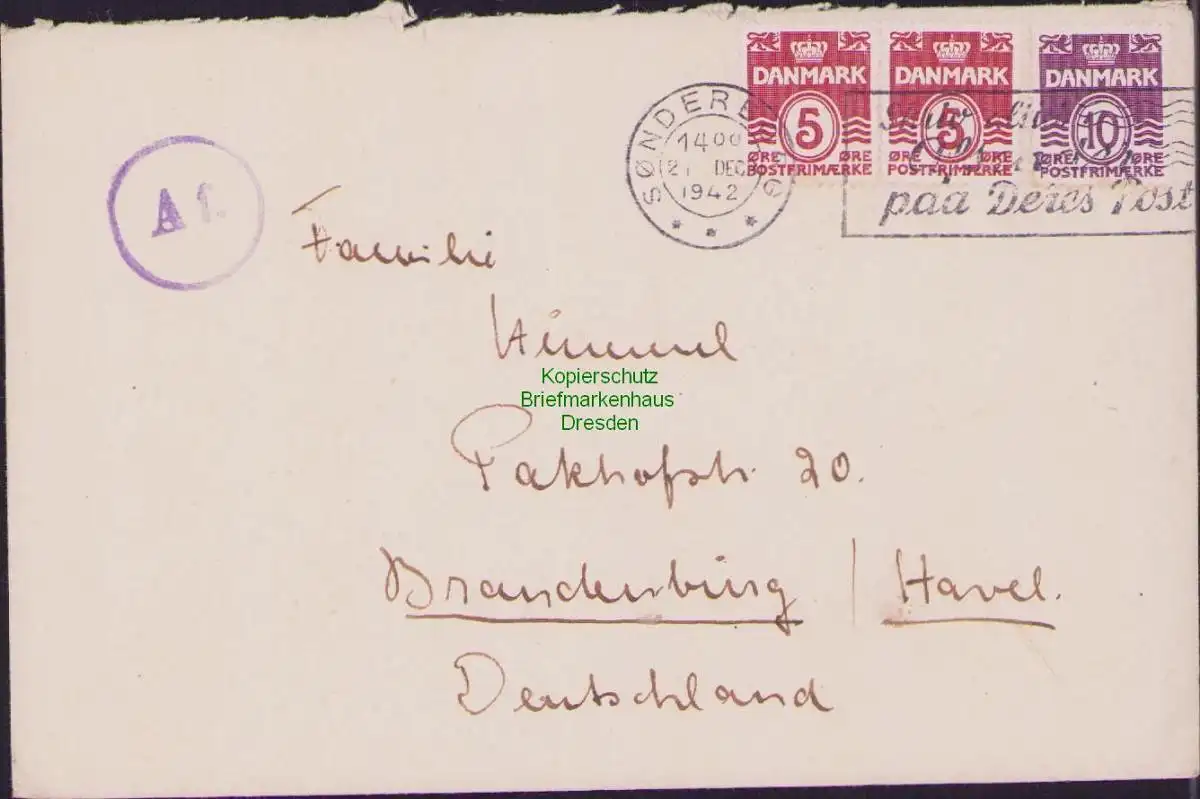 DANMARK DANMARK DANMARK
5 5 10
ØRE ØRE ØRE ØRE ØRE ØRE
POSTFRIMÆRKE POSTFRIMÆRKE POSTFRIMÆRKE
SØNDERBORG
1400
21 DEC
1942
paa Deres Post
A f.
Familie
Himmel
Kopierschutz
Briefmarkenhaus
Dresden
Pakhofstr. 20.
Brandenburg / Havel.
Deutschland